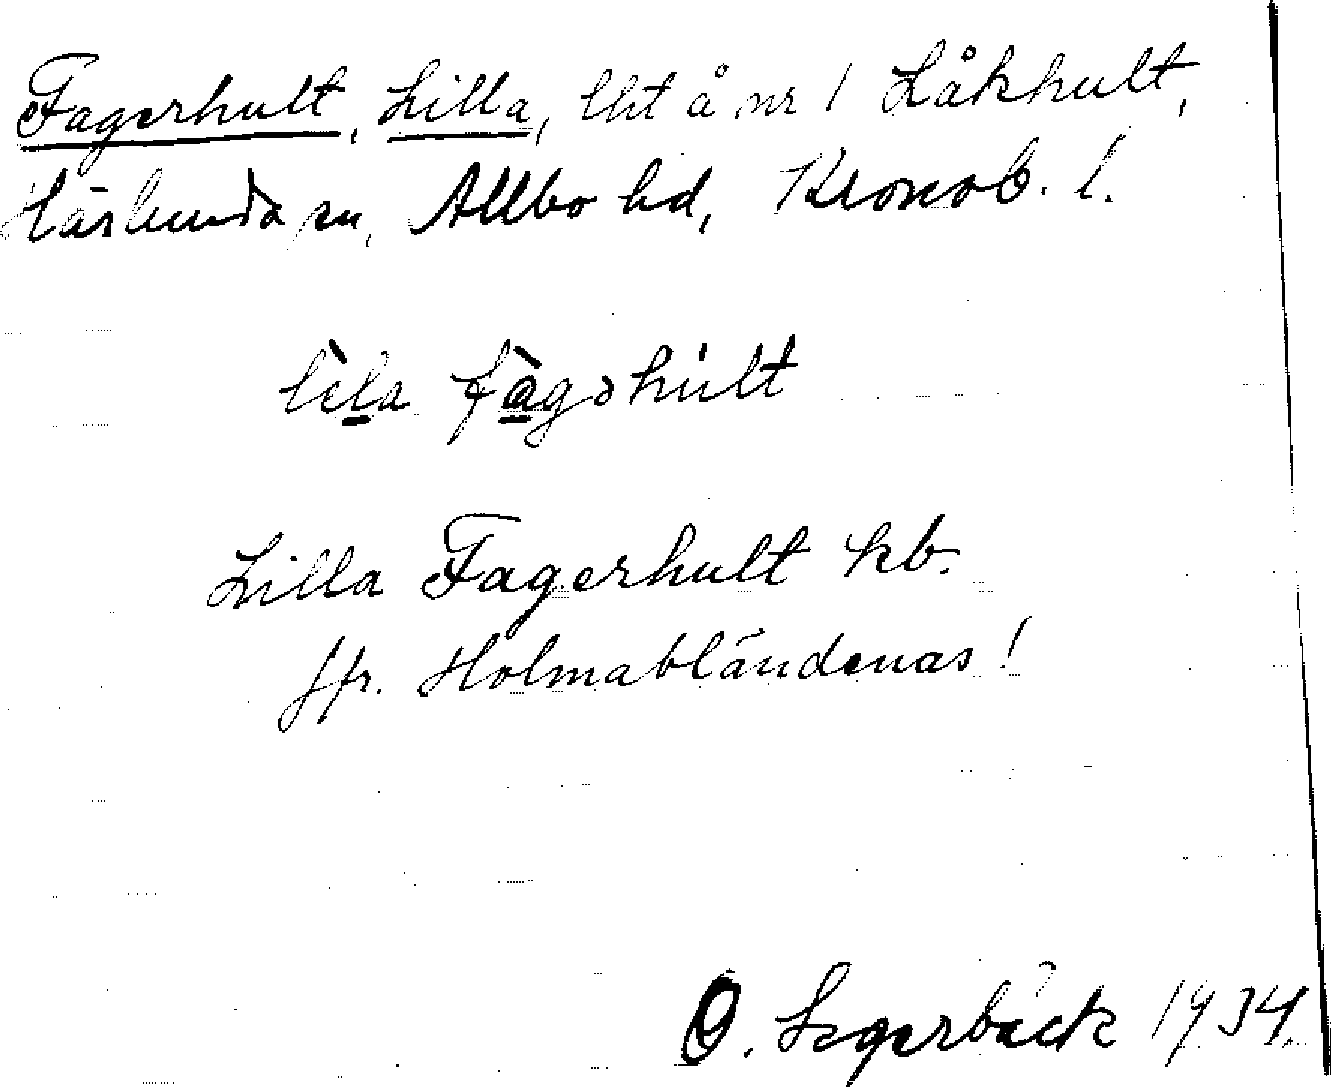 Fagerhult, Lilla, lht å nr 1 Låkhult,
Härlunda sn, Allbo hd, Kronob. l.
lìla fàgəhúlt
Lilla Fagerhult kb.
jfr. Holmabländenas!
O. Segerbäck 1934.